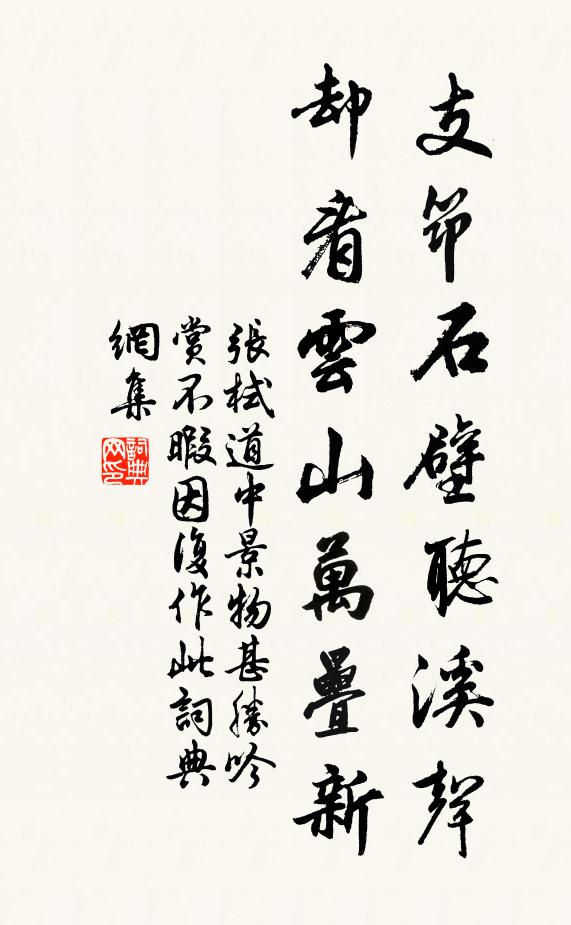 支筇石壁聽溪聲
却看雲山萬疊新
張栻道中景物甚勝吟
賞不暇因復作此詞典
網集
詞典網印